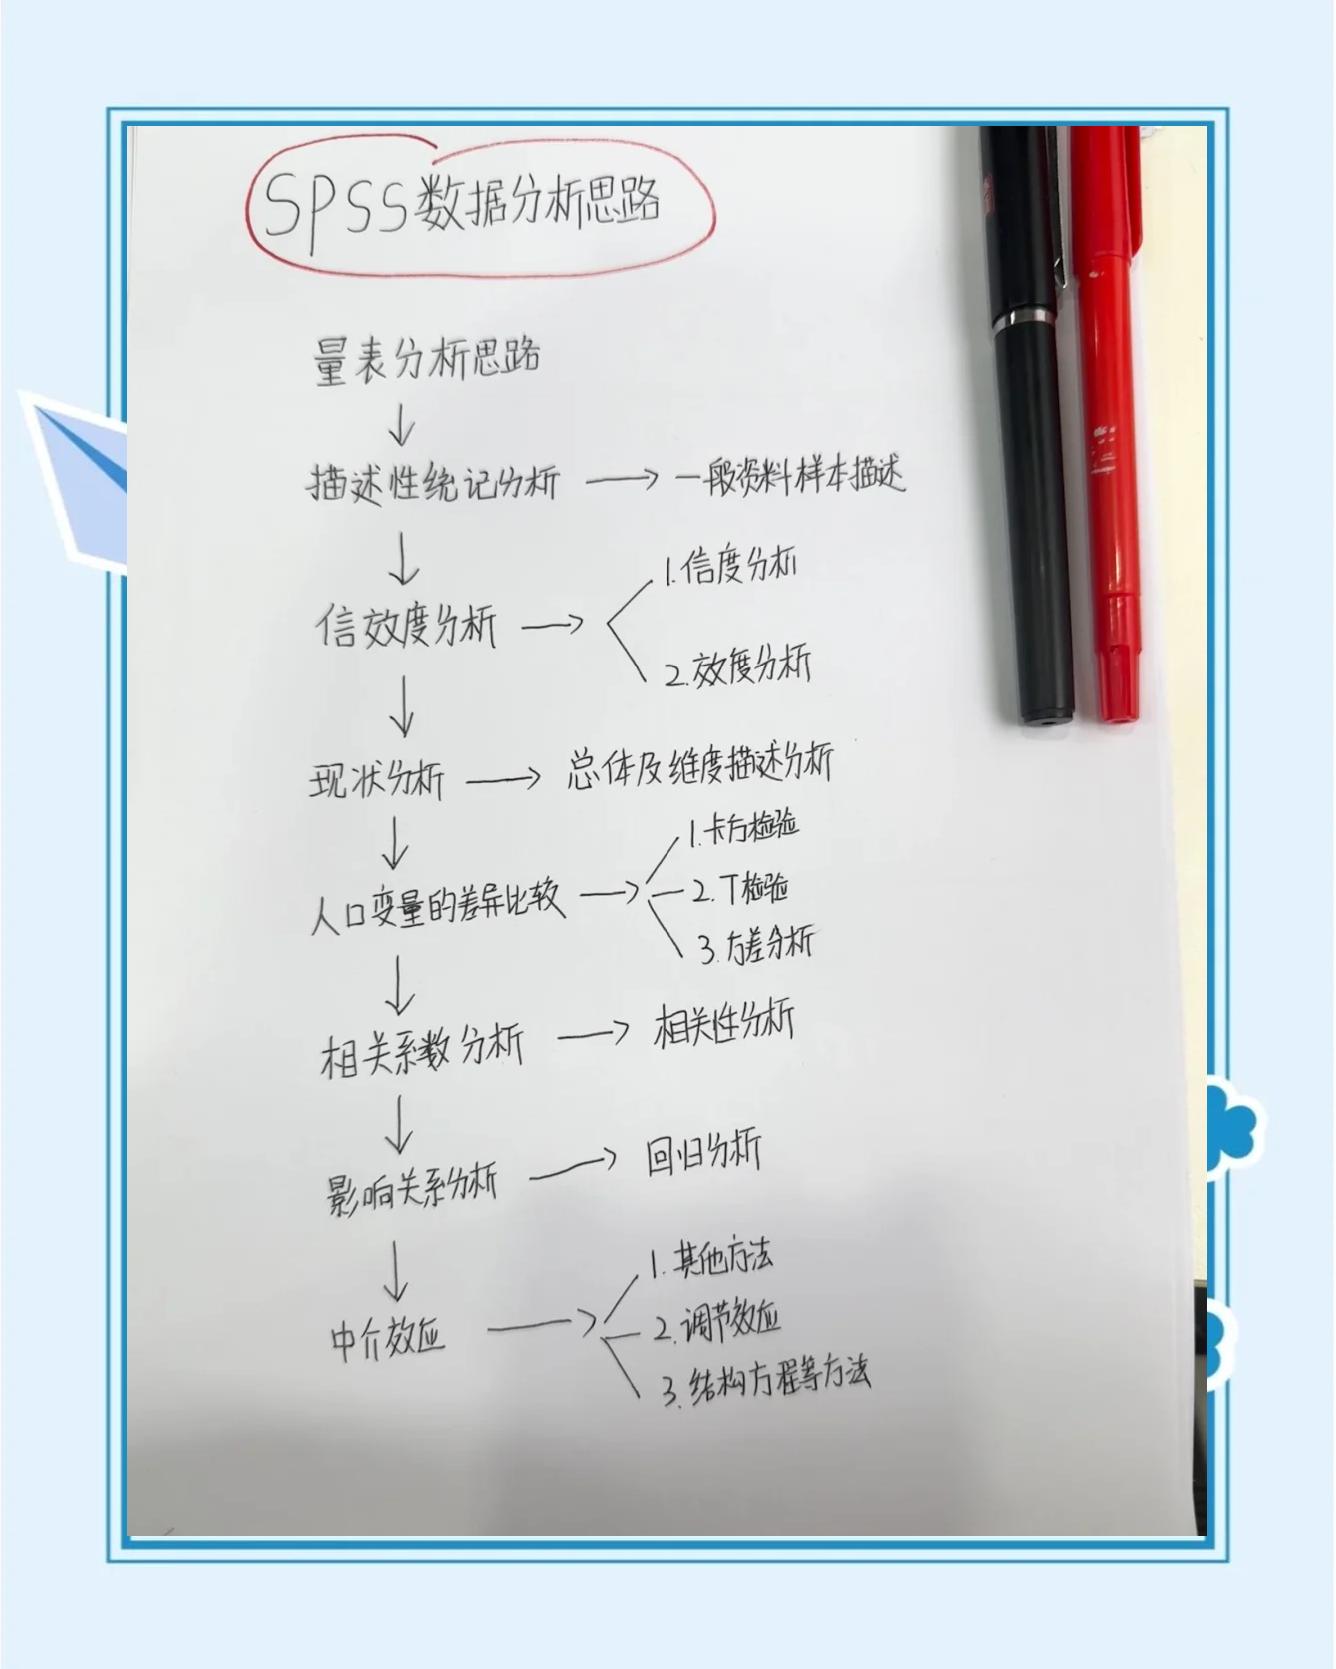 SPSS数据分析思路
量表分析思路
↓
描述性统记分析 → 一般资料样本描述
↓
信效度分析 → 1.信度分析
2.效度分析
↓
现状分析 → 总体及维度描述分析
↓
人口变量的差异比较 → 1.卡方检验
2.T检验
3.方差分析
↓
相关系数分析 → 相关性分析
↓
影响关系分析 → 回归分析
↓
中介效应 → 1.其他方法
2.调节效应
3.结构方程等方法